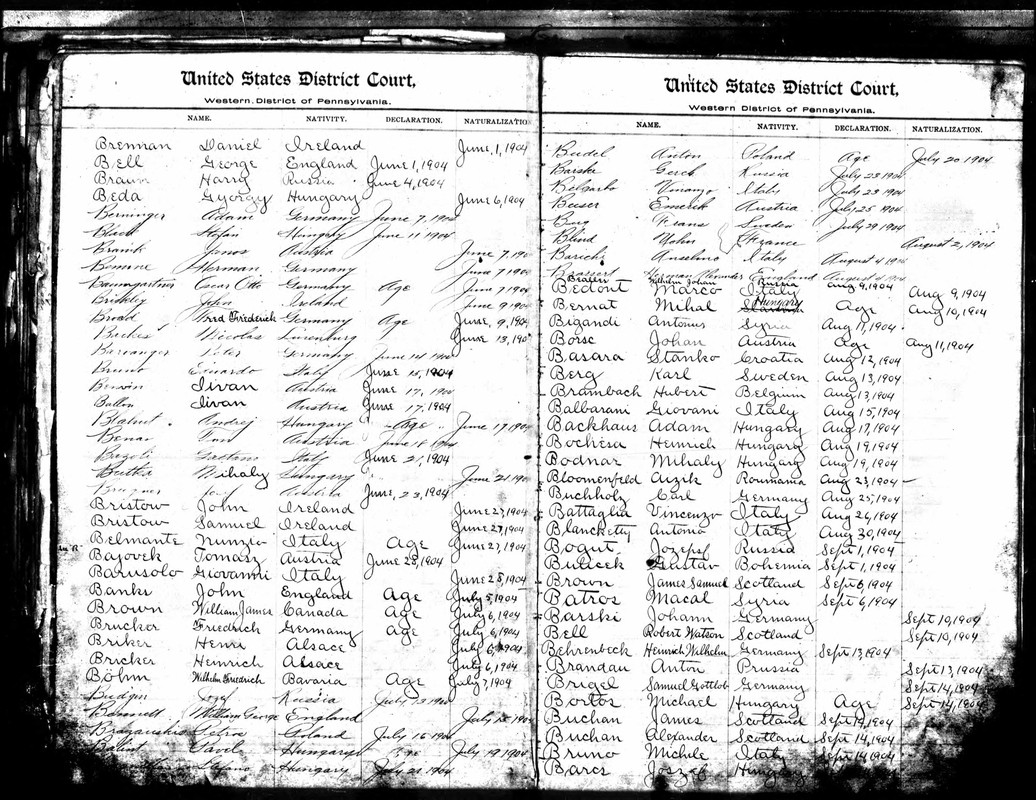 United States District Court,
Western District of Pennsylvania.
NAME. NATIVITY. DECLARATION. NATURALIZATION
Brennan Daniel Ireland June, 1, 1904
Bell George England June 1, 1904
Braun Harry Russia June 4, 1904
Beda György Hungary June 6, 1904
Berninger Adam Germany June 7, 1904
Black Stefan Hungary June 11 1904
Branik Janos Austria June 7, 190
Herman Germany June 7 190
Baumgartner Oscar Otto Germany Age June 7 190
John Ireland June 9 190
Broad Fred Friederich Germany Age June, 9, 190
Nicolas Luxenburg June 13, 190
Peter Germany June 14 190
Bruno Italy June 15, 1904
Austria June 17, 190
Austria June 17, 1904
Andrej Hungary Age June 17 1904
Austria June 18 1904
Italy June 21, 1904
Mihaly Hungary June 21 190
Austria June, 23, 1904
Bristow John Ireland June 27, 1904
Bristow Samuel Ireland June 27, 1904
Belmante Nunzio Italy Age June 27, 1904
Bajovek Tomasz Austria June 28, 1904
Barusolo Giovanni Italy June 28, 1904
Banks John England Age July 5, 1904
Brown William James Canada Age July 6, 1904
Brucker Friedrich Germany Age July 6, 1904
Briker Henri Alsace July 6, 1904
Bricker Heinrich Alsace July 6, 1904
Böhm Wilhelm Friedrich Bavaria Age July 7, 1904
Josef Russia July 13 190
Bennett William George England July 15 190
Petros Poland July 16 1904
Pavel Hungary Age July 19 1904
Hungary July 20 1904
United States District Court,
Western District of Pennsylvania.
NAME. NATIVITY. DECLARATION. NATURALIZATION.
Budel Anton Poland Age July 20 1904
Russia July 23 1904
Italy July 23 1904
Emerik Austria July 25 1904
Berg Frans Sweden July 29 1904
Blind John France August 2, 1904
Anselmo Italy August 4 190
Brassert Herman Alexander England August 4 1904
Wilhelm Johan Russia Aug 9, 1904
Bedont Marco Italy Aug 9, 1904
Bernat Mihal Hungary Age Aug 10, 1904
Bigandi Antonius Syria Aug 11, 1904
Borse Johan Austria Age Aug 11, 1904
Basara Stanko Croatia Aug 12, 1904
Berg Karl Sweden Aug 13, 1904
Brambach Hubert Belgium Aug 13, 1904
Balbarani Giovani Italy Aug 15, 1904
Backhaus Adam Hungary Aug 17, 1904
Bochesa Heinrich Hungary Aug 19, 1904
Bodnar Mihaly Hungary Aug 19, 1904
Bloomenfeld Aizik Roumania Aug 23, 1904
Buchholz Carl Germany Aug 25, 1904
Battaglia Vincenzo Italy Aug 26, 1904
Blancketty Antonio Italy Aug 30, 1904
Bogut Jozepf Russia Sept 1, 1904
Bulicek Gustav Bohemia Sept 1, 1904
Brown James Samuel Scotland Sept 6, 1904
Batros Macal Syria Sept 6, 1904
Barski Johann Germany Sept 10, 1904
Bell Robert Watson Scotland Sept 10, 1904
Behrenbeck Heinrich Wilhelm Germany Sept 13, 1904
Brandau Anton Prussia Sept 13, 1904
Brigel Samuel Gottlob Germany Sept 14, 1904
Bortos Michael Hungary Age Sept 14, 1904
Buchan James Scotland Sept 14, 1904
Buchan Alexander Scotland Sept 14, 1904
Bruno Michele Italy Sept 14, 1904
Barcs Joszef Hungary